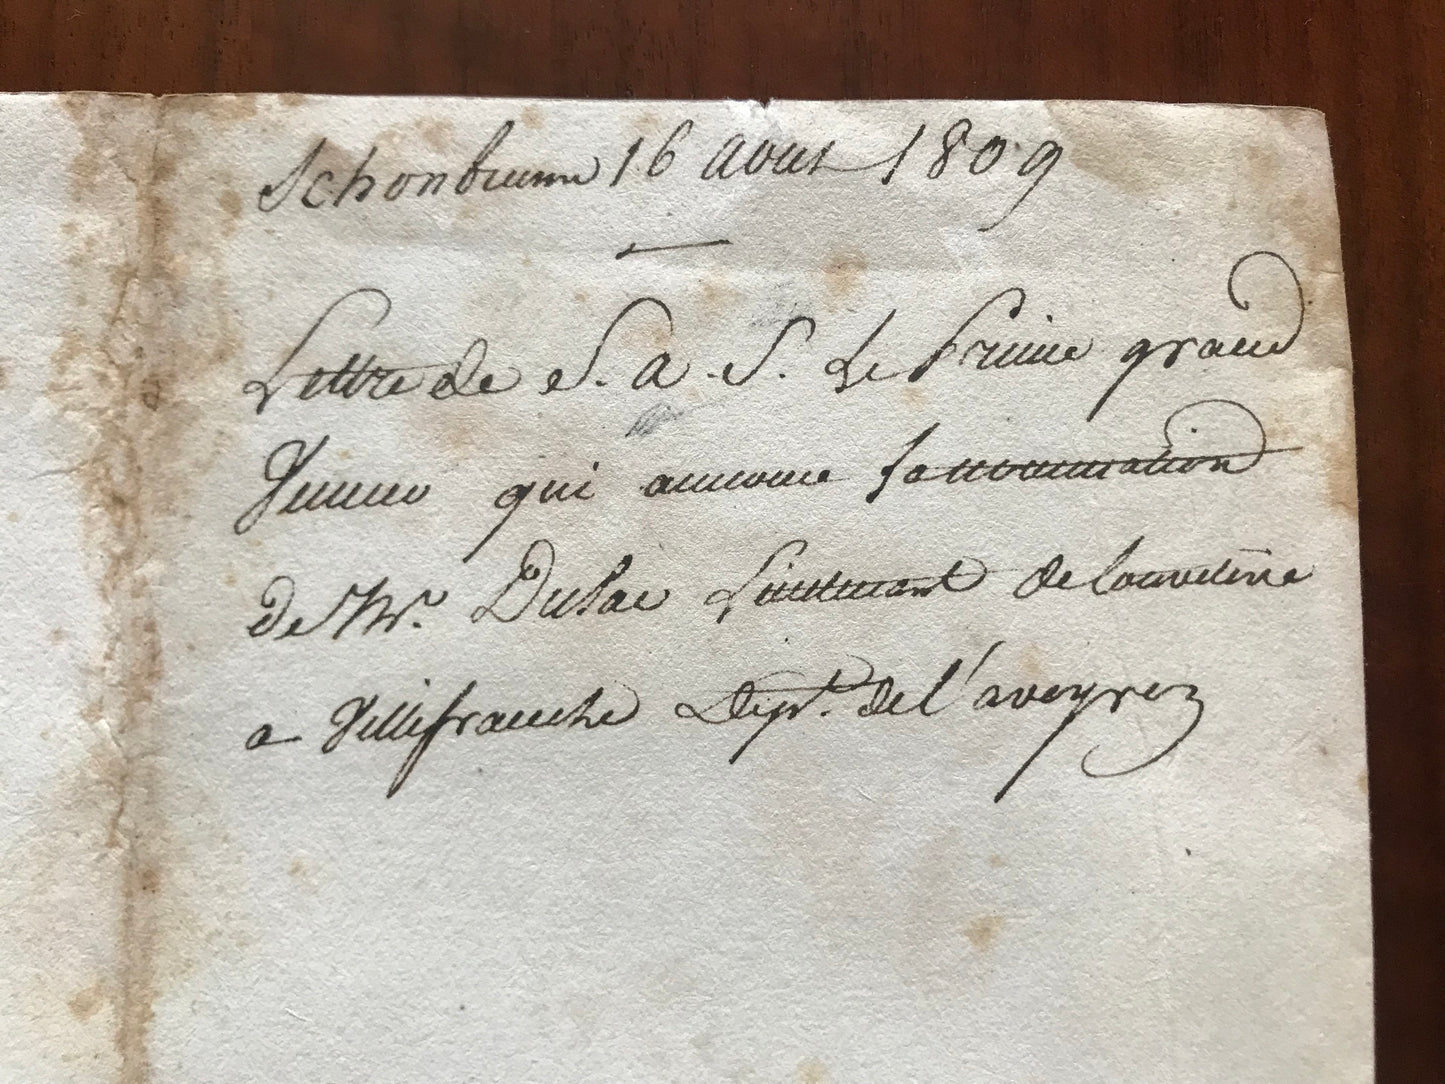 Schonbrunn 16 aout 1809
Lettre de S. a. S. Le Prince grand
Veneur qui annonce sa nomination
de Mr. Dulac Lieutenant de louveterie
a Villefranche Dept. de l'aveyron